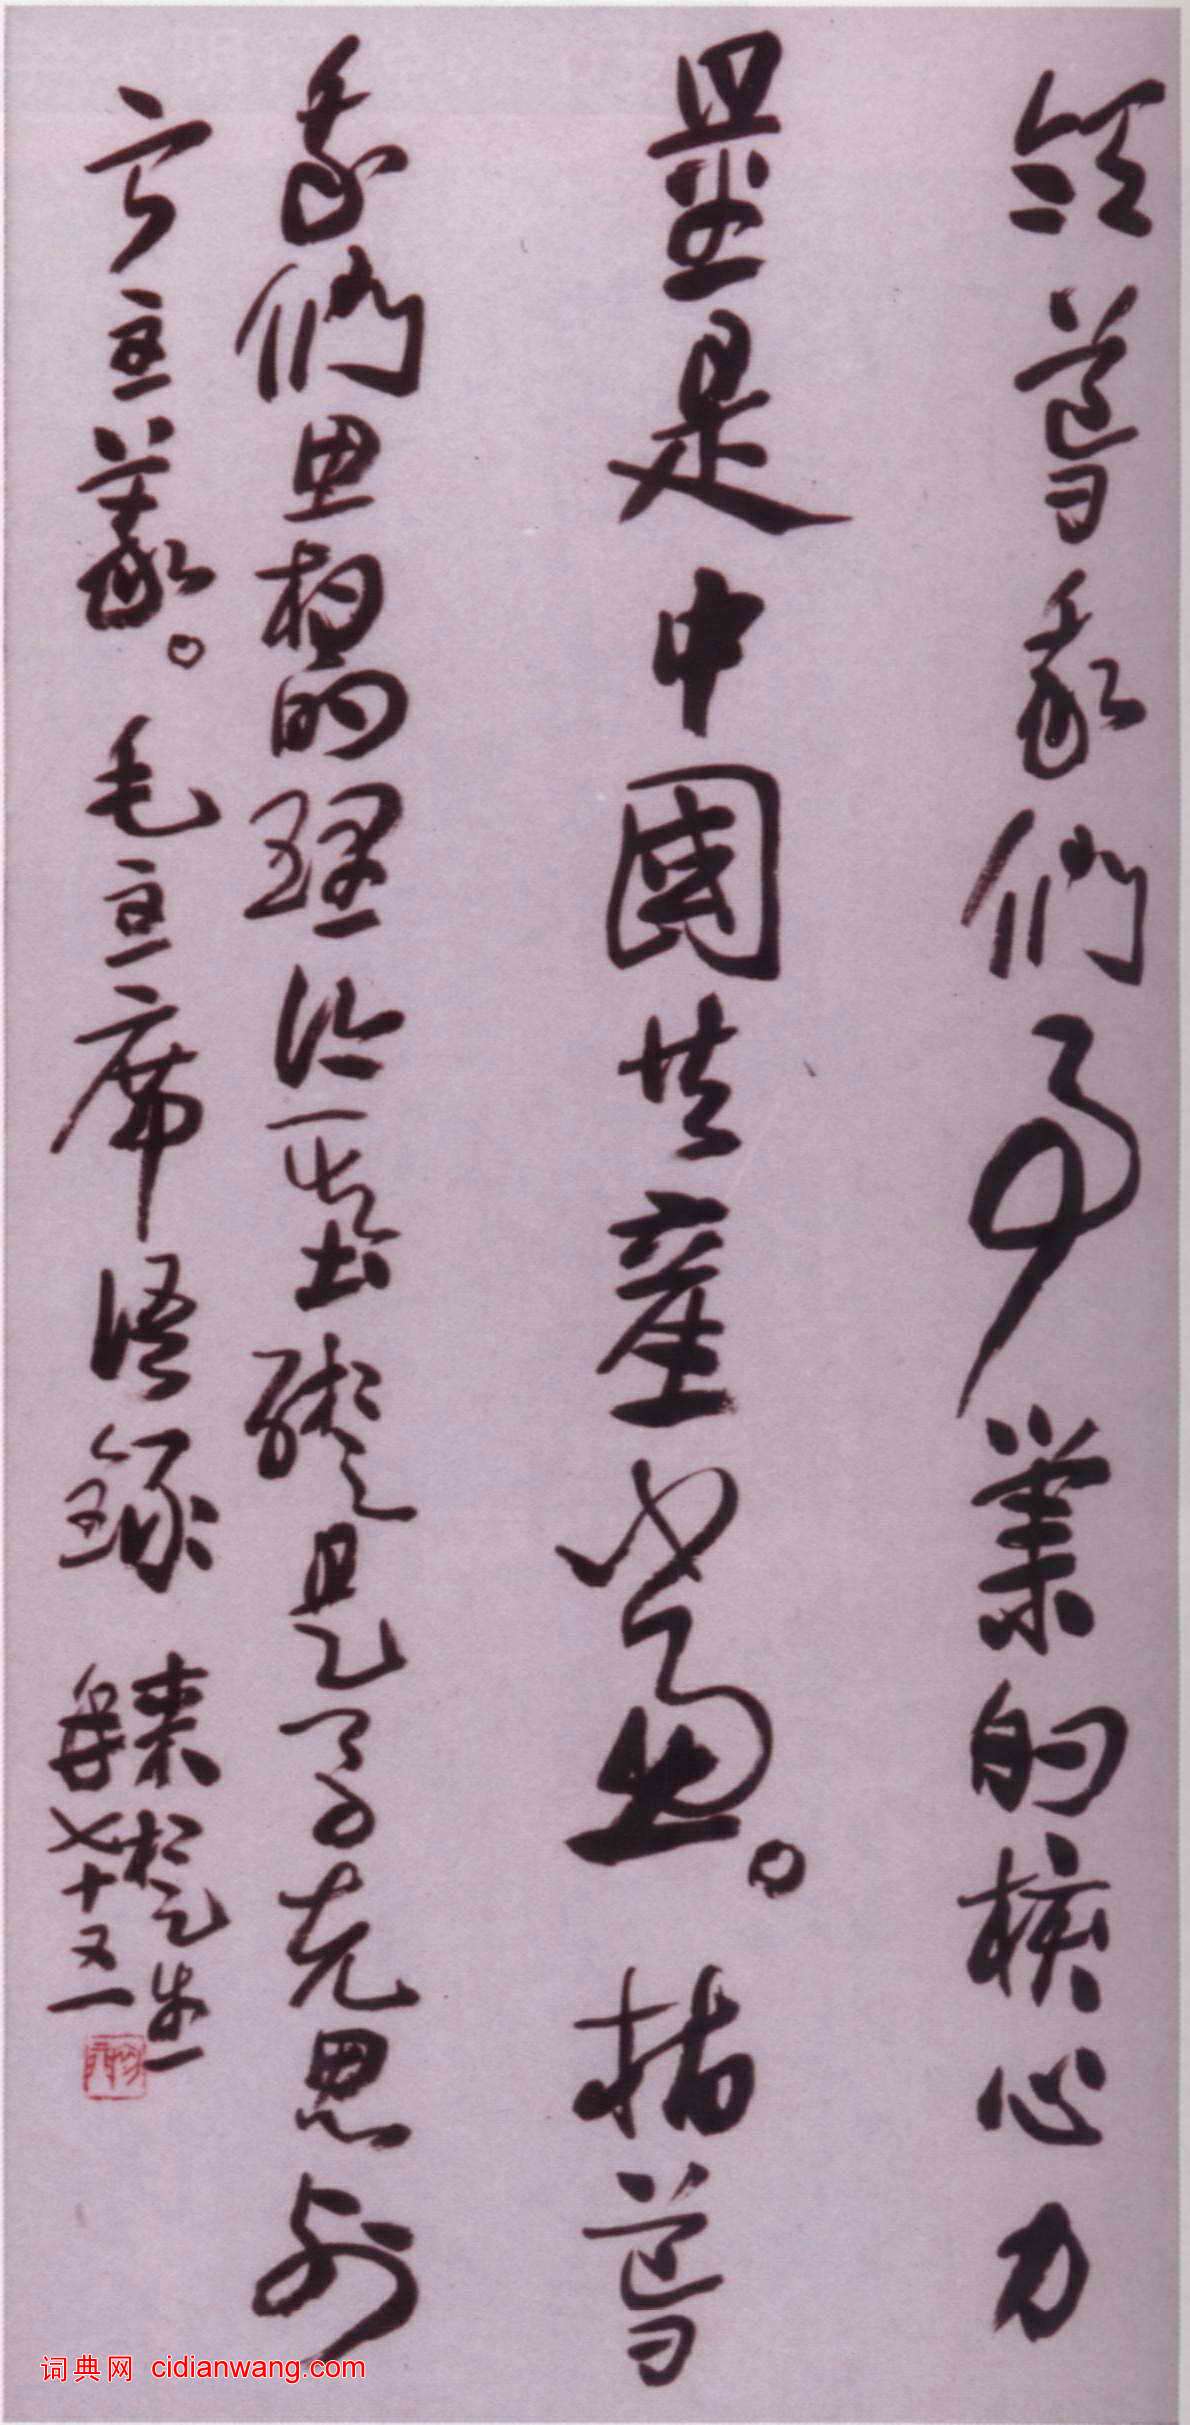 領導我們事業的核心力
量是中國共產黨。指導
我們思想的理論基礎是馬克思列
寧主義。毛主席語錄
楚生
年七十又一
词典网 cidianwang.com